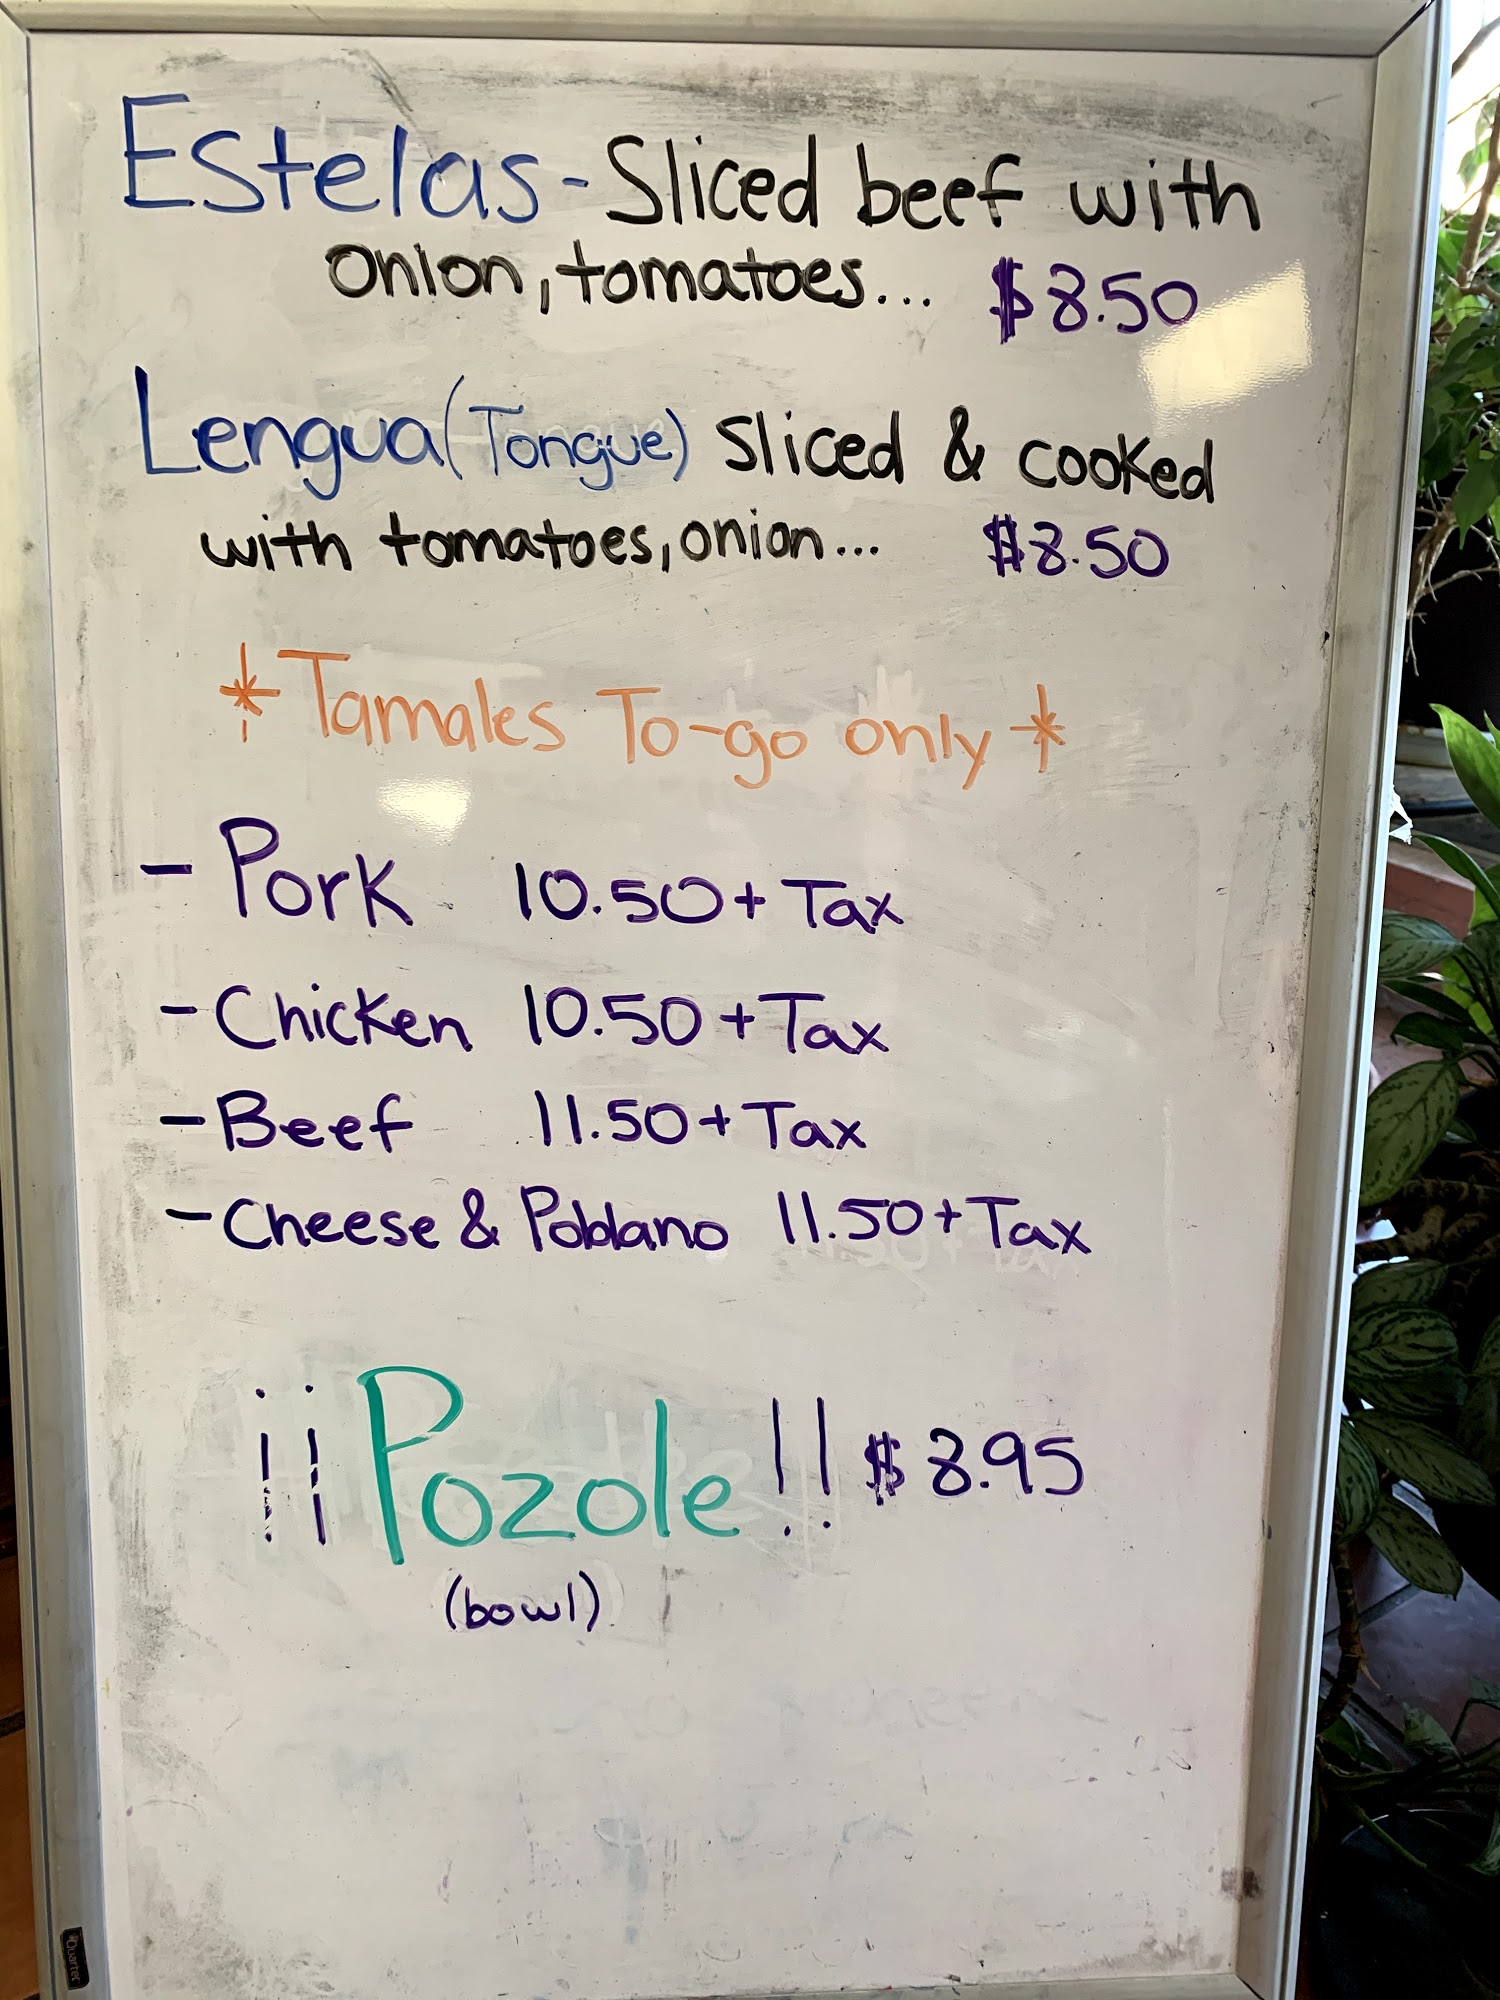 Estelas - Sliced beef with
onion, tomatoes... $8.50
Lengua (Tongue) Sliced & cooked
with tomatoes, onion... $8.50
* Tamales To-go only *
- Pork 10.50 + Tax
- Chicken 10.50 + Tax
- Beef 11.50 + Tax
- Cheese & Poblano 11.50 + Tax
¡¡Pozole!! $8.95
(bowl)
Quartet